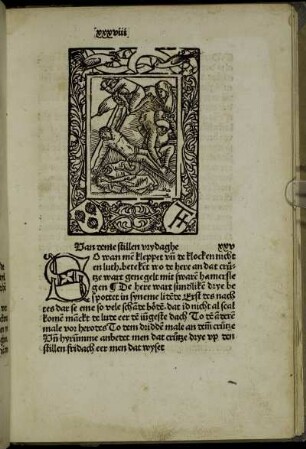 xxxviii
Van deme stillen vrydaghe xxv
SO wan mē kleppet vn̄ de klocken nicht
en luth. betekēt wo de here an dat crütz
ze wart genegelt mit sware hamer sle
gen ¶ De here wart sunt like drye be
spottet in syneme lidēde Erst des nach
tes dar se eme so vele schāde bōdē. dat id nicht al sc al
kome māckt de lude eer dē iügeste dach To dē ādern
male vor herodes To dem driddē male an dem crütze
Vn̄ hyrumme anbedet men dat crütze drye vp den
stillen fridach eer men dat wyset